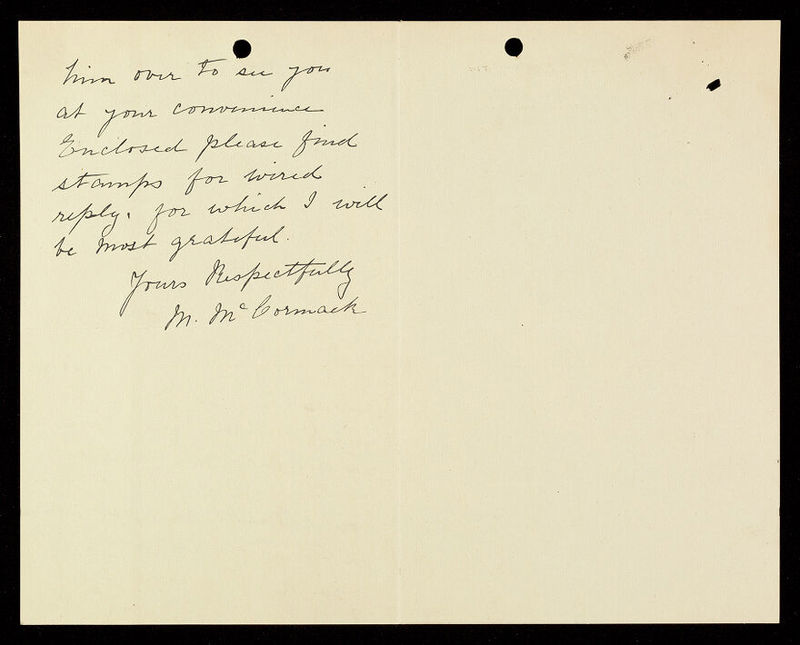 him over to see you
at your convenience
Enclosed please find
stamps for wired
reply. for which I will
be most grateful.
Yours Respectfully
M. McCormack